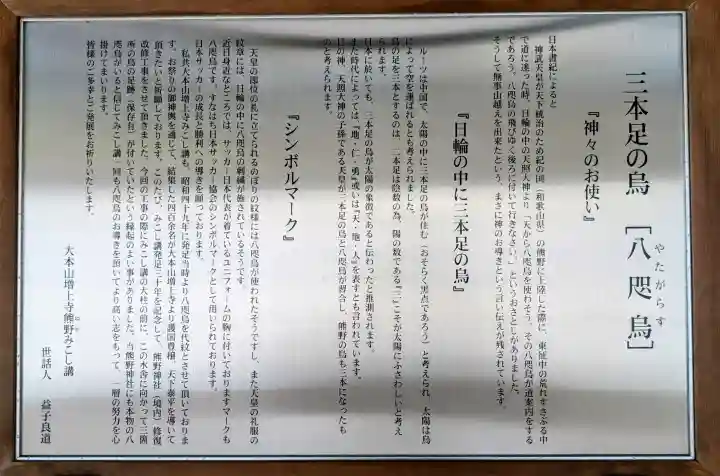 三本足の烏 [八咫烏]
やたがらす
『神々のお使い』
日本書紀によると
神武天皇が天下統治のため紀の国(和歌山県)の熊野に上陸した際に、東征中の荒れすさぶる中
で道に迷った時、日輪の中の天照大神より「天から八咫烏を使わそう、その八咫烏が道案内をする
であろう。八咫烏の飛びゆく後ろに付いて行きなさい。」というおさとしがありました。
そうして無事山越えを出来たという、まさに神のお導きという言い伝えが残されています。
『日輪の中に三本足の烏』
ルーツは中国で、太陽の中に三本足の烏が住む(おそらく黒点であろう)と考えられ、太陽は烏
によって空を運ばれるとも考えられました。
烏の足を三本とするのは、二本足は陰数の為、陽の数である『三』こそが太陽にふさわしいと考え
られます。
日本に於いても、三本足の烏が太陽の象徴であると伝わったと推測されます。
また時代によっては『地・仁・勇』或いは『天・地・人』を表すとも言われています。
日の神、天照大神の子孫である天皇が三本足の烏と八咫烏が習合し、熊野の烏も三本になったも
のと考えられます。
『シンボルマーク』
天皇の即位の良に立てられるのぼりの紋様には八咫烏が使われたそうですし、また天皇の礼服の
紋章には、日輪の中に八咫烏の刺繍が施されているそうです
近日身近なところでは、サッカー日本代表が着ているユニフォームの胸に付いておりますマークも
八咫烏です。すなわち日本サッカー協会のシンボルマークとして用いられております。
日本サッカーの成長と勝利への導きを願っております。
私共大本山増上寺みこし講も、昭和四十九年に発足当時より八咫烏を代紋とさせて頂いておりま
す。お祭りの御神輿を通じて、結集した四百余名が大本山増上寺より護国豊穣、天下泰平を導いて
頂きたいと祈願しております。このたび、みこし講発足三十年を記念して、熊野神社(境内)修復
改修工事をさせて頂きました。今回の工事の際にみこし講の大柱の前に、この水舎に向かって三箇
所の烏の足跡(保存有)が付いていたという縁起のよい事がありました。当熊野神社にも本物の八
咫烏がいると信じてみこし講一同も八咫烏のお導きを頂いてより高い志をもって、一層の努力を心
掛けてまいります。
皆様のご多幸とご発展をお祈りいたします。
大本山増上寺熊野みこし講
世話人 益子良道